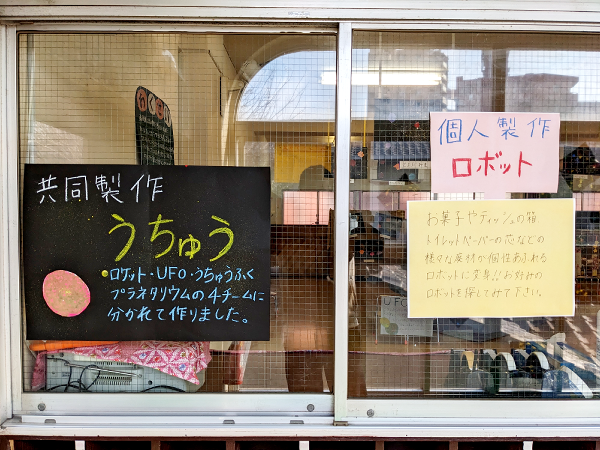 共同製作
うちゅう
ロケット・UFO・うちゅうふく
プラネタリウムの4チームに
分かれて作りました。
個人製作
ロボット
お菓子やティッシュの箱
トイレットペーパーの芯などの
様々な廃材が個性あふれる
ロボットに変身!!お好みの
ロボットを探してみて下さい。
UFO